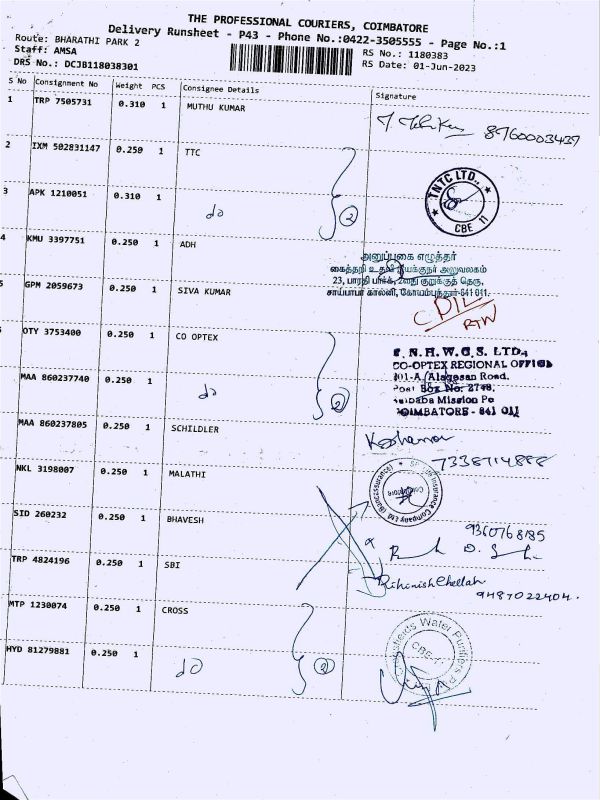 THE PROFESSIONAL COURIERS, COIMBATORE
Delivery Runsheet - P43 - Phone No.:0422-3505555 - Page No.:1
Route: BHARATHI PARK 2
RS No.: 1180383
Staff: AMSA
RS Date: 01-Jun-2023
DRS No.: DCJB118038301
S No Consignment No Weight PCS Consignee Details Signature
1 TRP 7505731 0.310 1 MUTHU KUMAR
8760003437
2 IXM 502831147 0.250 1 TTC
TNTC LTD., CBE 11
3 APK 1210051 0.310 1 do 2
4 KMU 3397751 0.250 1 ADH
அனுப்புகை எழுத்தர்
கைத்தறி உதவி இயக்குநர் அலுவலகம்
23, பாரதி பார்க், 2வது குறுக்குத் தெரு,
சாய்பாபா காலனி, கோயம்புத்தூர்-641 011.
5 GPM 2059673 0.250 1 SIVA KUMAR
CDIL
RTN
OTY 3753400 0.250 1 CO OPTEX
T.N.H.W.C.S. LTD.,
CO-OPTEX REGIONAL OFFICE
101-A, Alagesan Road,
Post Box No. 2748,
Saibaba Mission Po
COIMBATORE - 641 011
MAA 860237740 0.250 1 do 2
MAA 860237805 0.250 1 SCHILDLER
7338714888
NKL 3198007 0.250 1 MALATHI
Insurance Company Ltd (Bancassurance)
Coimbatore
SID 260232 0.250 1 BHAVESH
9360768185
TRP 4824196 0.250 1 SBI
9487022404.
MTP 1230074 0.250 1 CROSS
Water Purifiers
CBE-11
HYD 81279881 0.250 1 do 2